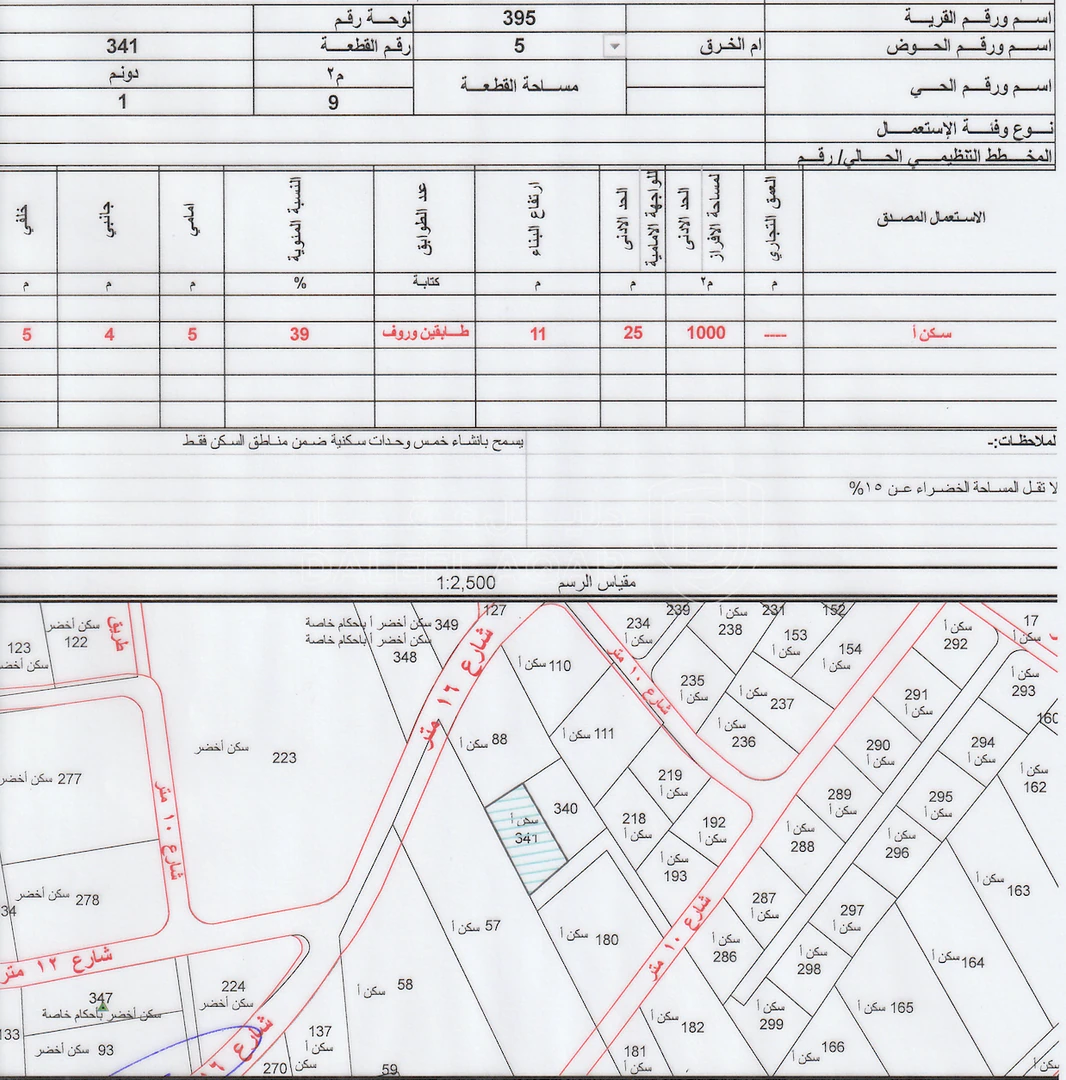 اسم ورقم القرية 395 لوحة رقم
اسم ورقم الحوض ام الخرق 5 رقم القطعة 341
اسم ورقم الحي مساحة القطعة م٢ دونم
9 1
نوع وفئة الإستعمال
المخطط التنظيمي الحالي/رقم
الاستعمال المصدق العمق التجاري الحد الادنى لمساحة الافراز الحد الادنى للواجهة الامامية ارتفاع البناء عدد الطوابق النسبة المئوية امامي جانبي خلفي
م م٢ م م كتابة % م م م
سكن أ ---- 1000 25 11 طابقين وروف 39 5 4 5
لملاحظات:- يسمح بانشاء خمس وحدات سكنية ضمن مناطق السكن فقط
لا تقل المساحة الخضراء عن ١٥%
مقياس الرسم 1:2,500
127
239 سكن أ 231 152
349 سكن أخضر أ بأحكام خاصة
348 سكن أخضر أ بأحكام خاصة
234 سكن أ
238
17 سكن أ
122 سكن أخضر
123 سكن أخضر
طريق
شارع ١٦ متر
153 سكن أ
154 سكن أ
292 سكن أ
110 سكن أ
شارع ١٠ متر
235 سكن أ
237 سكن أ
236 سكن أ
291 سكن أ
293 سكن أ
160
223 سكن أخضر
88 سكن أ
111 سكن أ
290 سكن أ
294 سكن أ
277 سكن أخضر
219 سكن أ
162 سكن أ
شارع ١٠ متر
340
341 سكن أ
218 سكن أ
192 سكن أ
289 سكن أ
295 سكن أ
288 سكن أ
296 سكن أ
193 سكن أ
278 سكن أخضر
34
287 سكن أ
163 سكن أ
297 سكن أ
57 سكن أ
180 سكن أ
شارع ١٠ متر
286 سكن أ
298 سكن أ
164 سكن أ
شارع ١٢ متر
58 سكن أ
224 سكن أخضر
347
سكن أخضر بأحكام خاصة
299 سكن أ
165 سكن أ
182 سكن أ
133
93 سكن أخضر
شارع ١٦
137 سكن أ
181 سكن أ
166 سكن أ
270 سكن
59
سكن أ